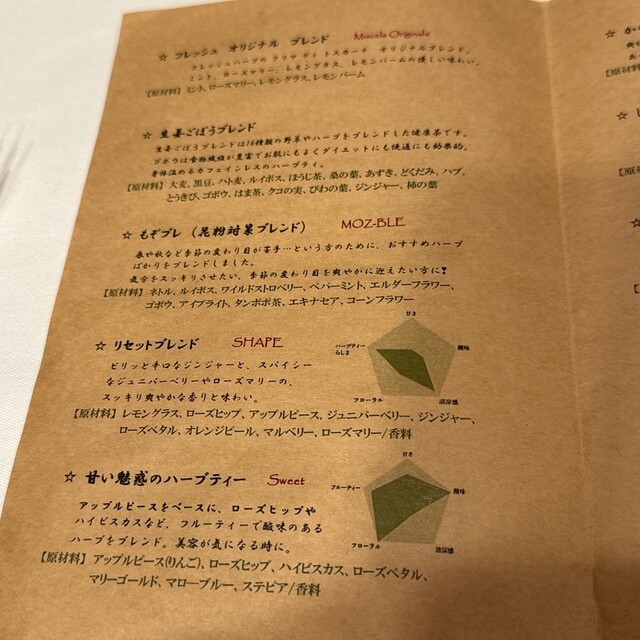 ☆ フレッシュ オリジナル ブレンド Miscela Originale
フレッシュハーブの クッチーナ ヴィ トスカーナ オリジナルブレンド。
ミント、ローズマリー、レモングラス、レモンバームの優しい味わい。
【原材料】ミント、ローズマリー、レモングラス、レモンバーム
☆ 生姜ごぼうブレンド
生姜ごぼうブレンドは16種類の野菜やハーブをブレンドした健康茶です。
ゴボウは食物繊維が豊富でお肌にもよくダイエットにも便通にも効果的。
身体温めるカフェインレスのハーブティ。
【原材料】大麦、黒豆、ハト麦、ルイボス、ほうじ茶、桑の葉、あずき、どくだみ、ハブ、
とうきび、ゴボウ、はま茶、クコの実、びわの葉、ジンジャー、柿の葉
☆ もぞブレ（花粉対策ブレンド） MOZ-BLE
春や秋など季節の変わり目が苦手…という方のために、おすすめハーブ
ばかりをブレンドしました。
気分をスッキリさせたい、季節の変わり目を爽やかに迎えたい方に！
【原材料】ネトル、ルイボス、ワイルドストロベリー、ペパーミント、エルダーフラワー、
ゴボウ、アイブライト、タンポポ茶、エキナセア、コーンフラワー
☆ リセットブレンド SHAPE
ピリッと辛口なジンジャーと、スパイシー
なジュニパーベリーやローズマリーの、
スッキリ爽やかな香りと味わい。
甘さ
ハーブティー
らしさ
酸味
フローラル
清涼感
【原材料】レモングラス、ローズヒップ、アップルピース、ジュニパーベリー、ジンジャー、
ローズペタル、オレンジピール、マルベリー、ローズマリー/香料
☆ 甘い魅惑のハーブティー Sweet
アップルピースをベースに、ローズヒップや
ハイビスカスなど、フルーティーで酸味のある
ハーブをブレンド。美容が気になる時に。
甘さ
フルーティー
酸味
フローラル
清涼感
【原材料】アップルピース(りんご)、ローズヒップ、ハイビスカス、ローズペタル、
マリーゴールド、マローブルー、ステビア/香料